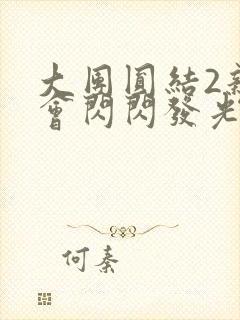 大團圓結2
會閃閃發光
何秦